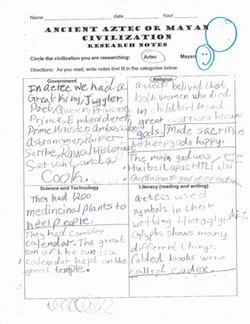 Name: date hour
ANCIENT AZTEC OR MAYAN
CIVILIZATION
RESEARCH NOTES
Circle the civilization you are researching: Aztec Mayan
Directions: As you read, write notes that fit in the categories below.
Government
In aztec we had a
Great King, Juggler,
Poet,
Prince, Embroidered,
Prime Minister, Ambassador
Astronomer, Farmer
Scribe, Royal Historian
Servant, and a
Cook.
Religion
aztecs belived that
both women who died
in childbirth and
great warriors became
gods. Made sacrifice
to keep gods happy.
The main god was
Huitzilopochtli
Science and Technology
They had 1200
medicinal plants to
heel people.
They had a
calendar. The great
sun of the sun is a
calendar kept in the
great temple.
Literacy (reading and writing)
aztecs used
symbols in their
writing Hieroglyphics
glyphs shows many
different things.
folded books were
called codex.